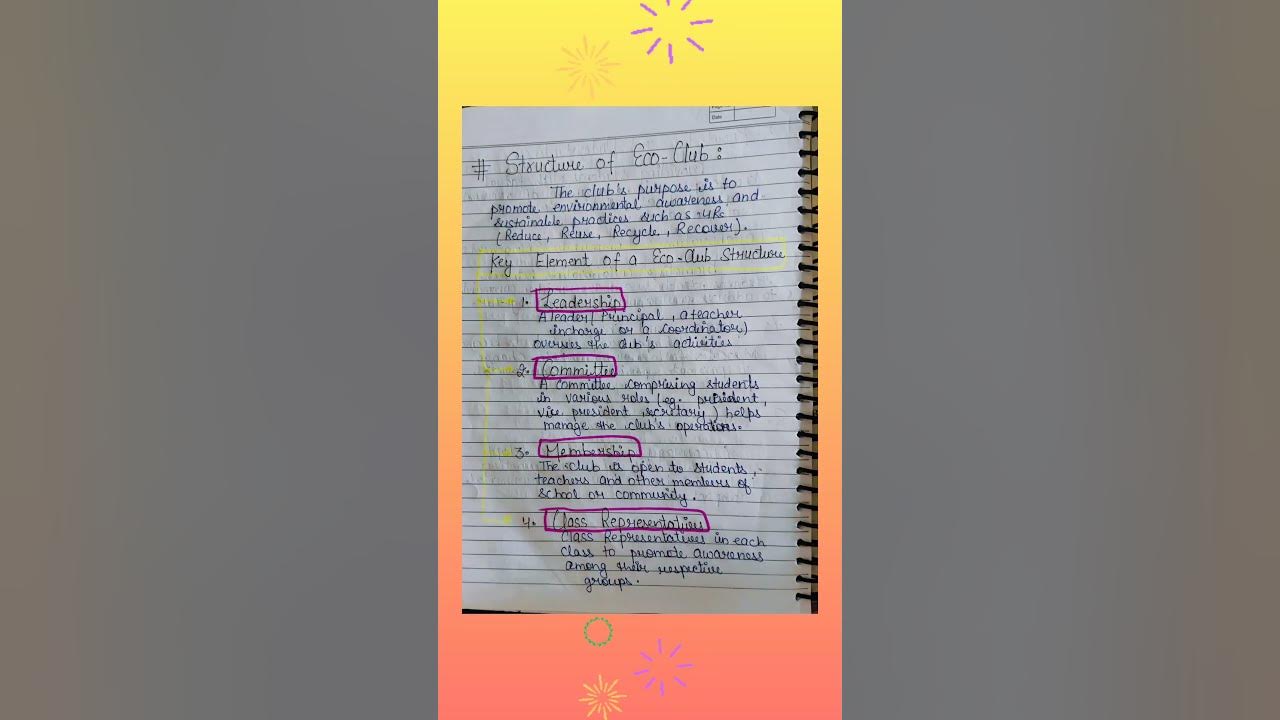 Date
# Structure of Eco-Club :
The club's purpose is to
promote environmental awareness and
sustainable practices such as 4Rs
(Reduce, Reuse, Recycle, Recover).
Key Element of a Eco-Club Structure
1. Leadership
A leader (Principal, a teacher
incharge or a coordinator)
oversees the club's activities
2. Committee
A committee comprising students
in various roles (eg. president,
vice president, secretary) helps
manage the club's operations.
3. Membership
The club is open to students,
teachers and other members of
school or community.
4. Class Representatives
Class Representatives in each
class to promote awareness
among their respective
groups.